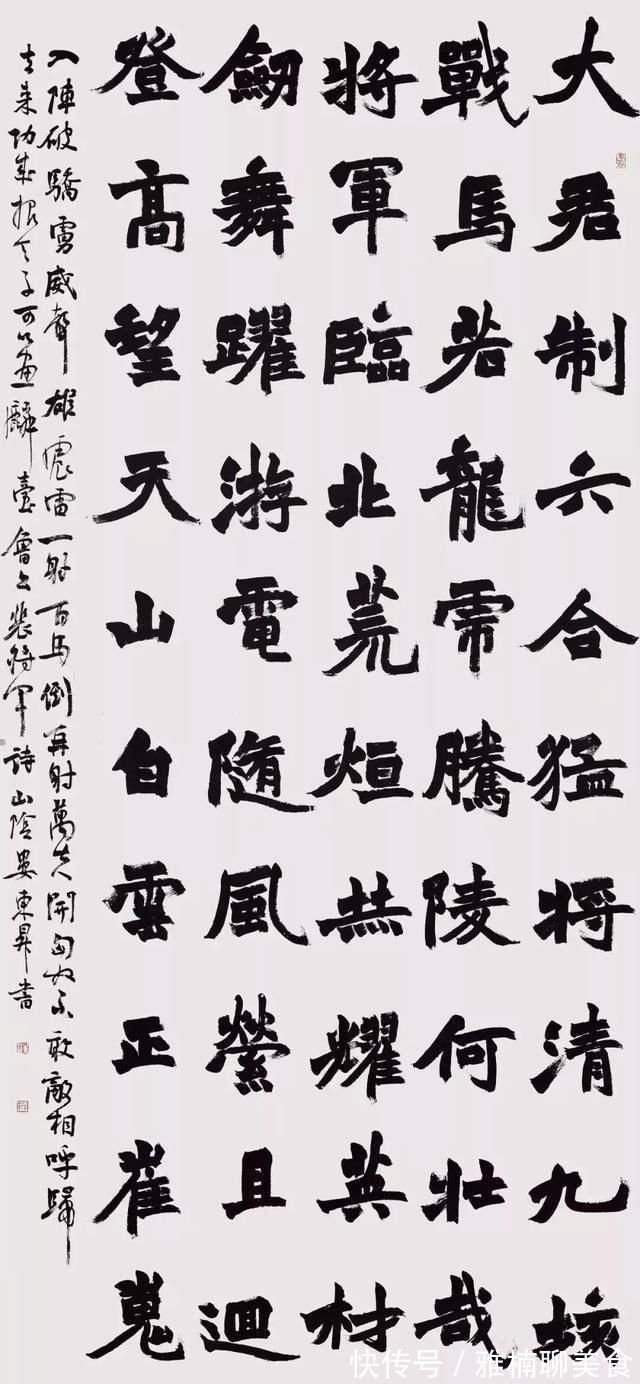 大君制六合猛將清九垓
戰馬若龍虎騰陵何壯哉
將軍臨北荒烜赫耀英材
劒舞躍游電隨風縈且迴
登高望天山白雲正崔嵬
入陣破驕虜威聲雄震雷一射百馬倒再射萬夫開匈奴不敢敵相呼歸
去來功成報天子可以畫麟臺魯公裴將軍詩山陰婁東昇書
快传号 / 雅楠聊美食